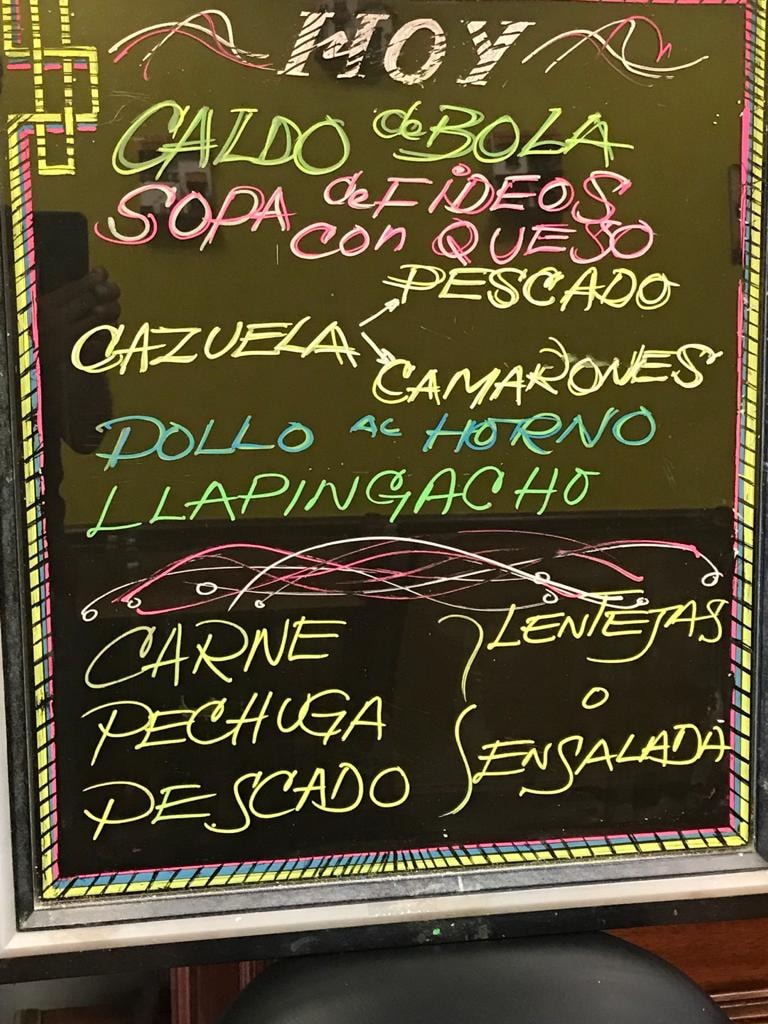 HOY
CALDO de BOLA
SOPA de FIDEOS
con QUESO
PESCADO
CAZUELA
CAMARONES
POLLO AL HORNO
LLAPINGACHO
CARNE
LENTEJAS
PECHUGA
o
ENSALADA
PESCADO